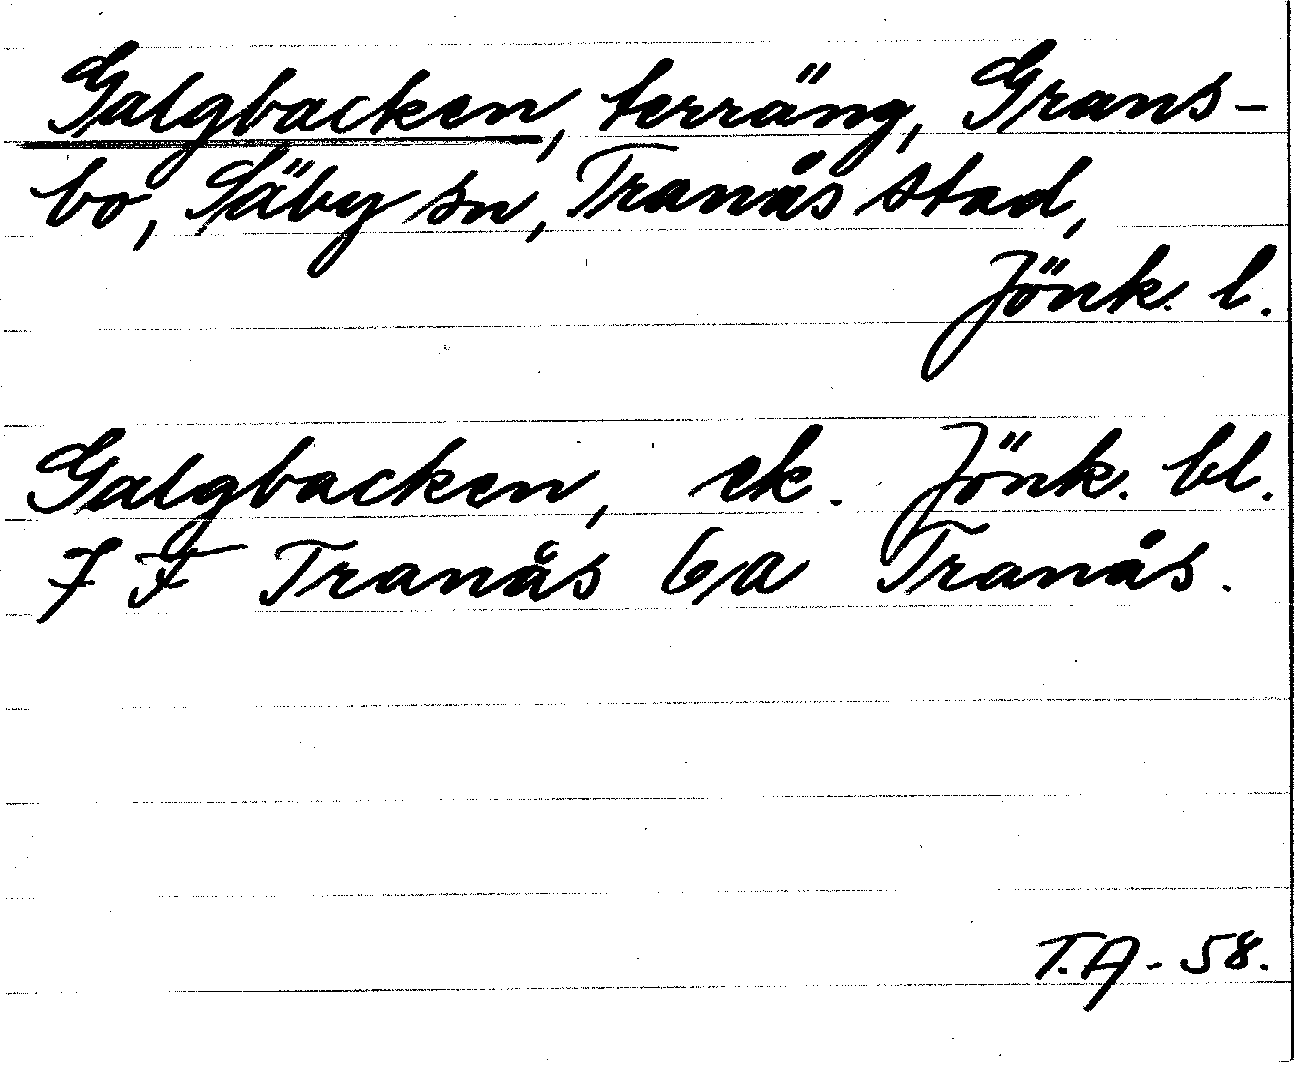 Galgbacken, terräng, Grans-
bo, Säby sn, Tranås stad,
Jönk. l.
Galgbacken, ek. Jönk. bl.
7 F Tranås 6a Tranås.
T.A-58.